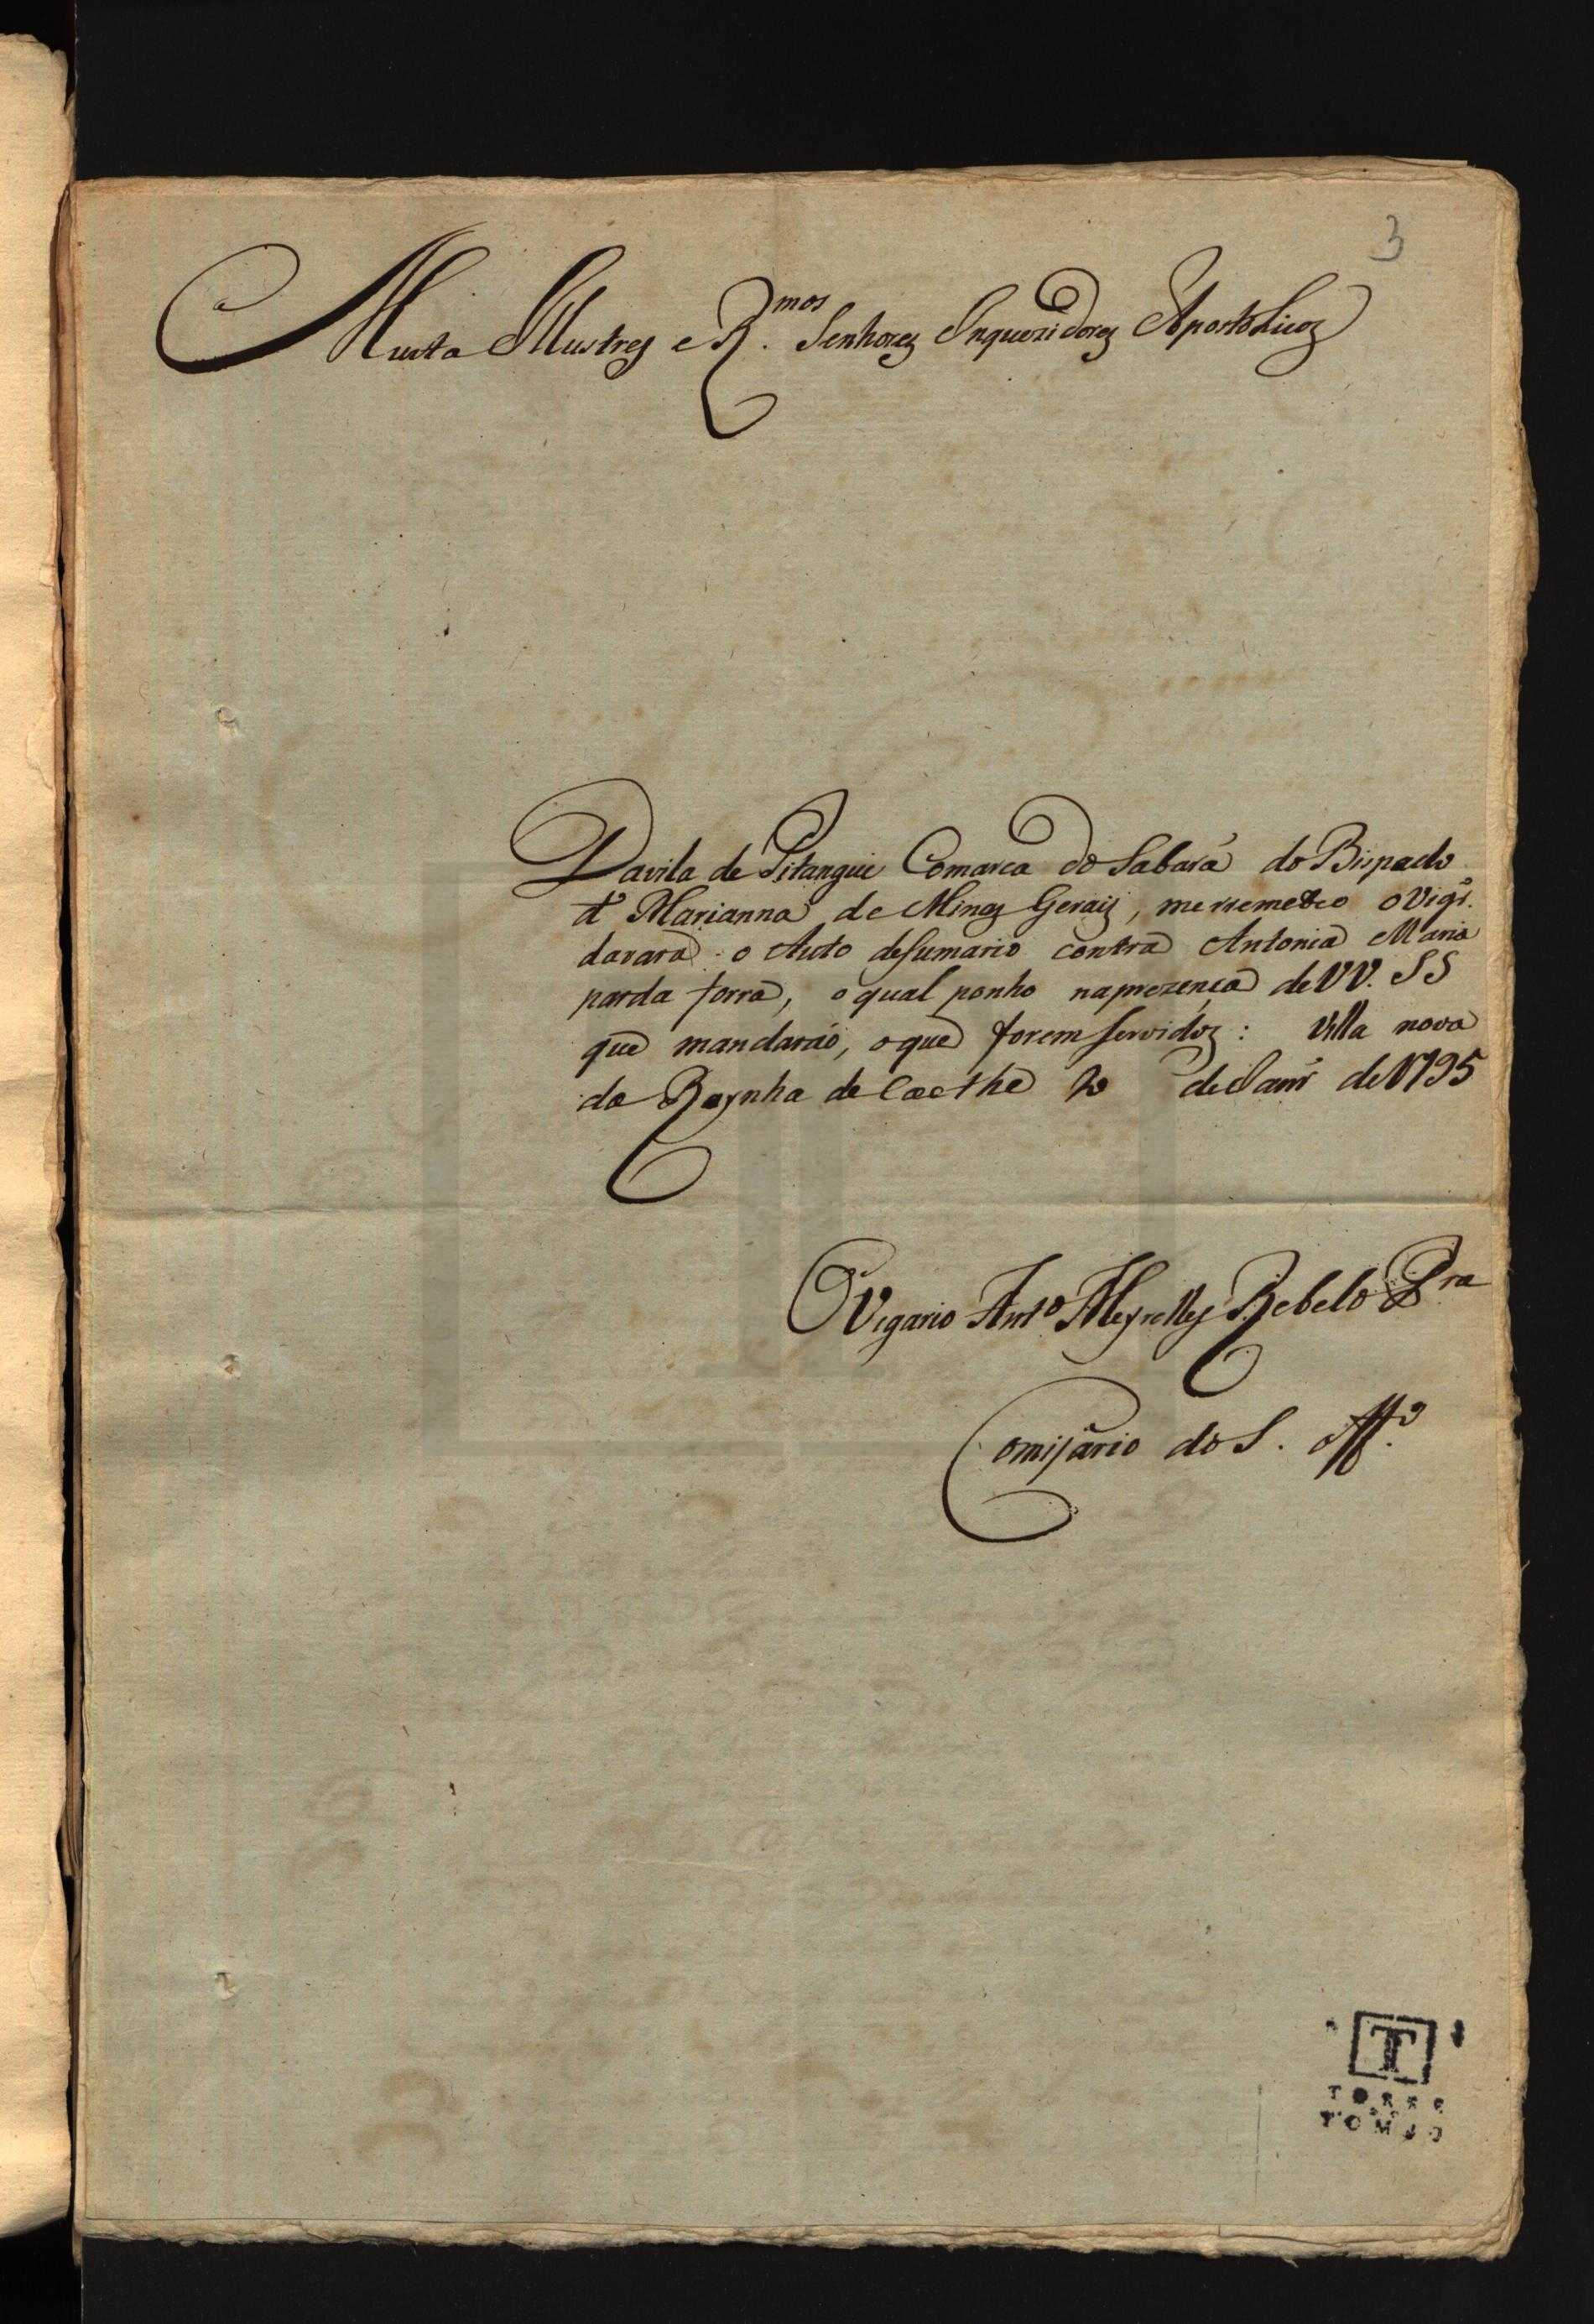 3
Muito Illustres e R.mos Senhores Inquezidores Apostolicos
Davila de Pitangui Comarca do Sabará do Bispado
de Marianna de Minas Gerais, me remeteo o Vigr.
davara o Auto desumario contra Antonia Maria
parda forra, o qual ponho naprezença de VV. SS
que mandarão, oque forem servidos: Villa nova
da Raynha de Caethe de Janr de 1795
O Vigario Anto Meyrelles Rebelo Pra
Comisario do S. Offo.
T
TORRE
DO
TOMBO